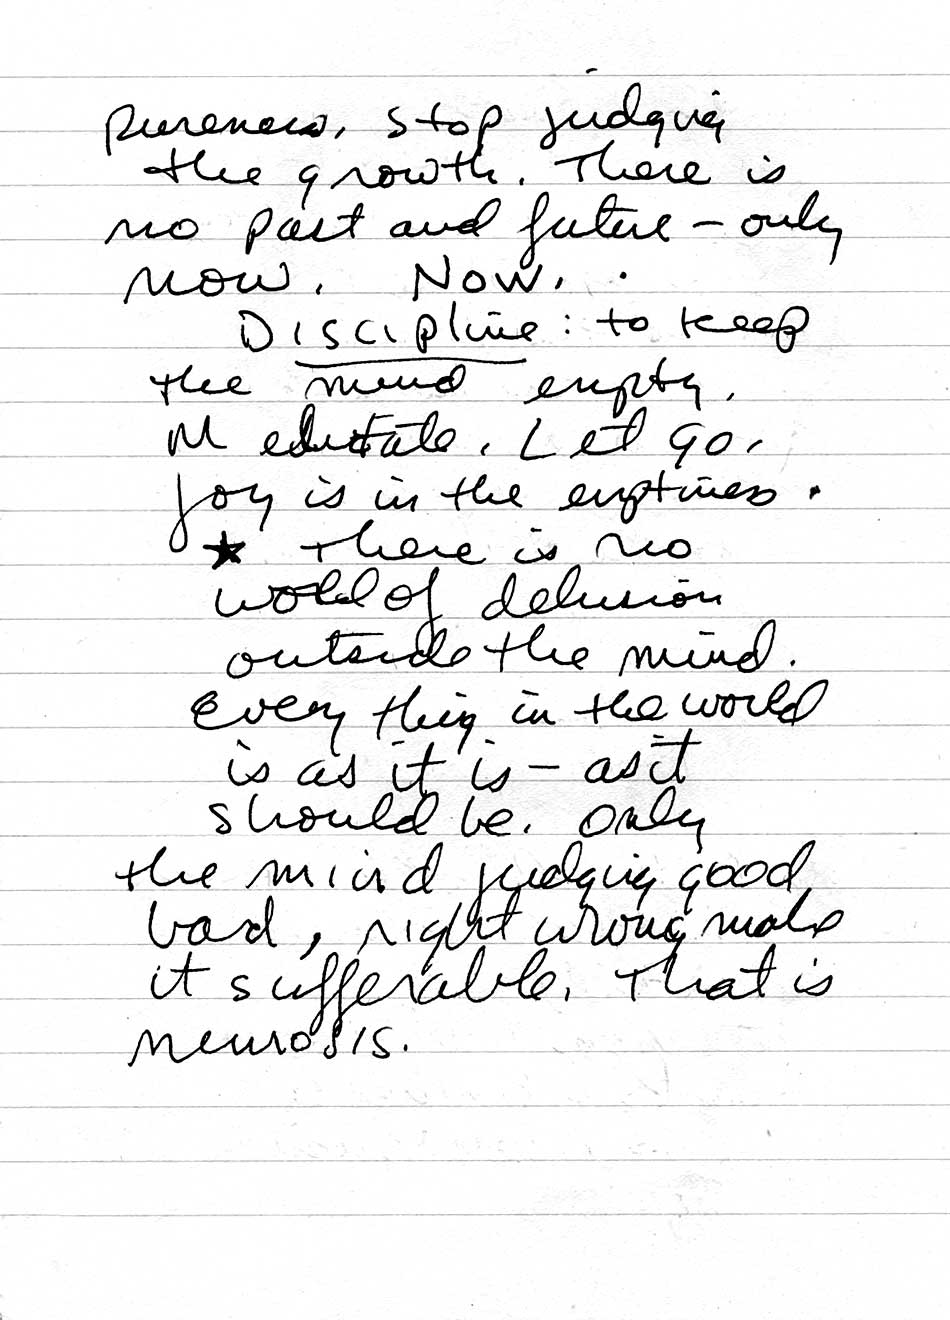 pureness. Stop judging
the growth. There is
no past and future - only
now. Now.
Discipline: to keep
the mind empty.
Meditate. Let go.
Joy is in the emptiness.
★ There is no
world of delusion
outside the mind.
Everything in the world
is as it is - as it
should be. Only
the mind judging good,
bad, right wrong makes
it sufferable. That is
neurosis.